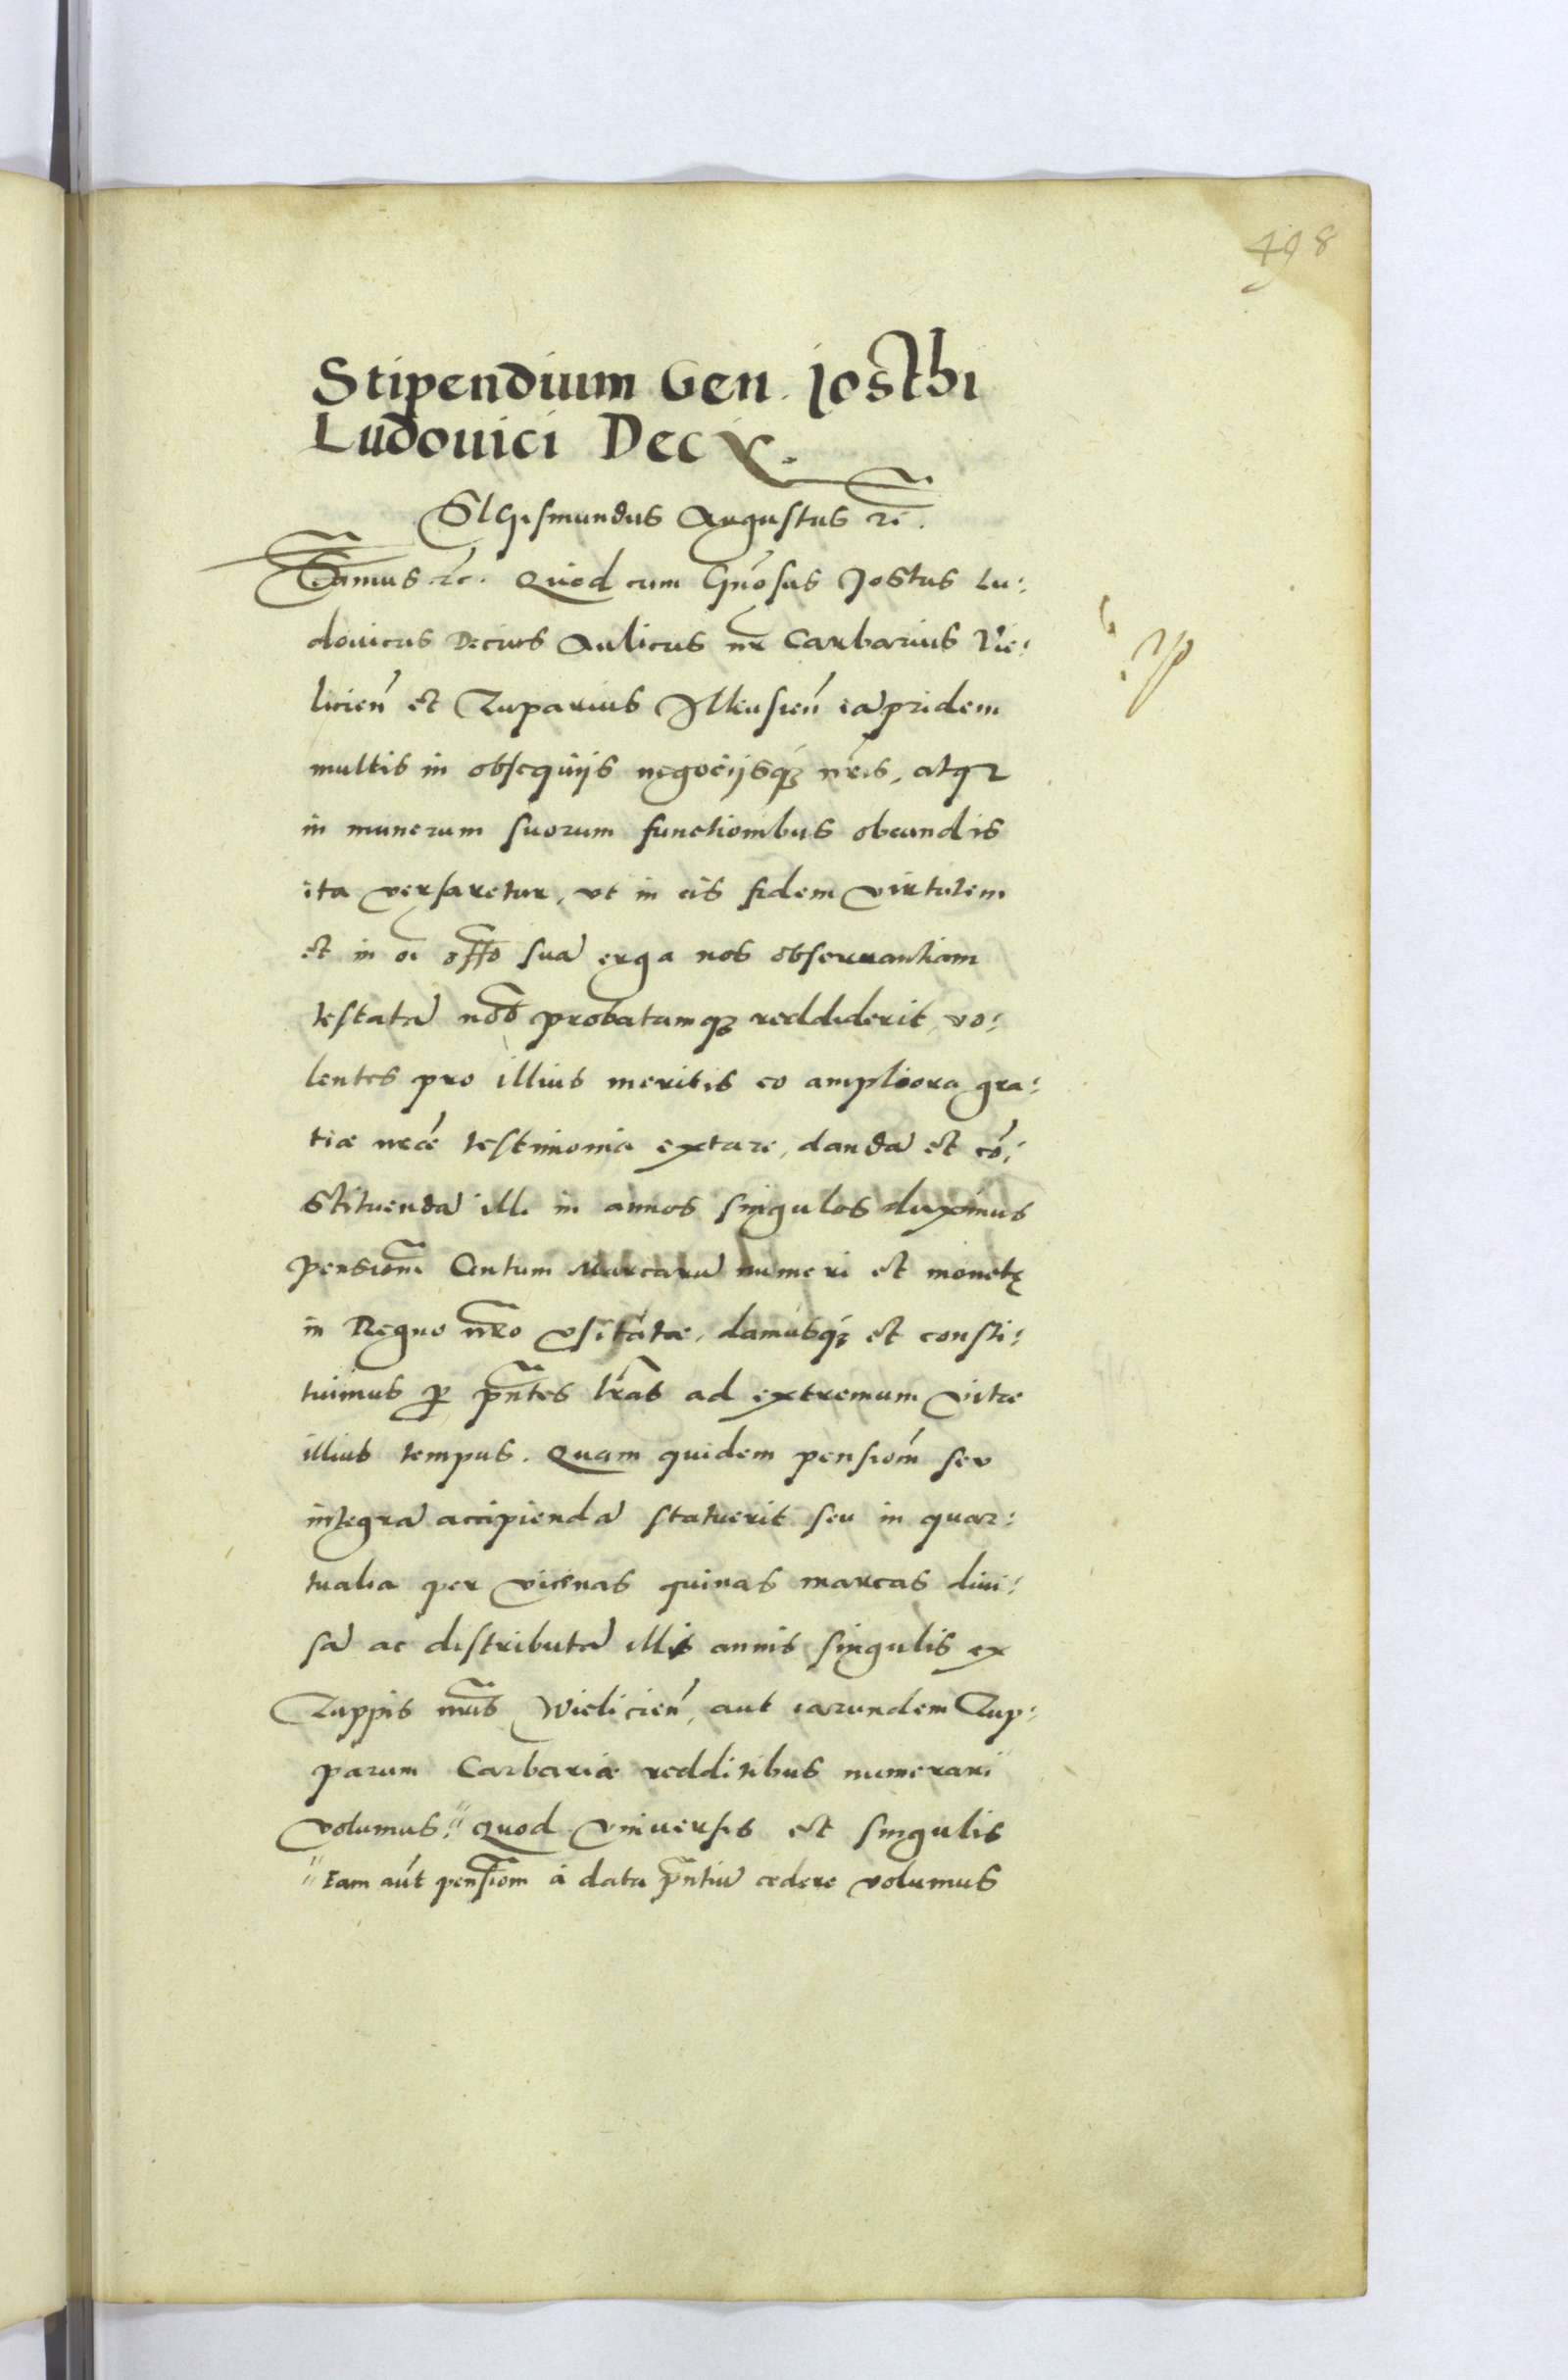 498
Stipendium Gen. Josthi
Ludouici Decy.
SIGismundus Augustus etc.
Damus etc. Quod cum Gnosus Jostus Lu:
douicus Decius Aulicus nr Carbarius Vie:
licien et Zuparius Ilkusien ia pridem
multis in obsequijs negocijsq nris, atq
in munerum suorum functionibus obeundis
ita versaretur, vt in eis fidem virtutem
et in oi offo sua erga nos obseruantiam
testata nob probatamq reddiderit, vo:
lentes pro illius meritis eo ampliora gra:
tiæ nræ testimonia extare, danda et co:
stituenda illi in annos singulos duximus
pensione Centum Marcaru numeri et monetę
in Regno nro vsitatæ, damusq et consti:
tuimus p pntes lras ad extremum vitæ
illius tempus. Quam quidem pensiom seu
integra accipienda statuerit seu in quar:
tualia per vicenas quinas marcas diui:
sa ac distributa illi annis singulis ex
Zuppis nris Wielicien, aut earundem Zup:
parum Carbariæ redditibus numerari
volumus." Quod vniuersis et singulis
" Eam aut pensiom à data pntiu cedere volumus